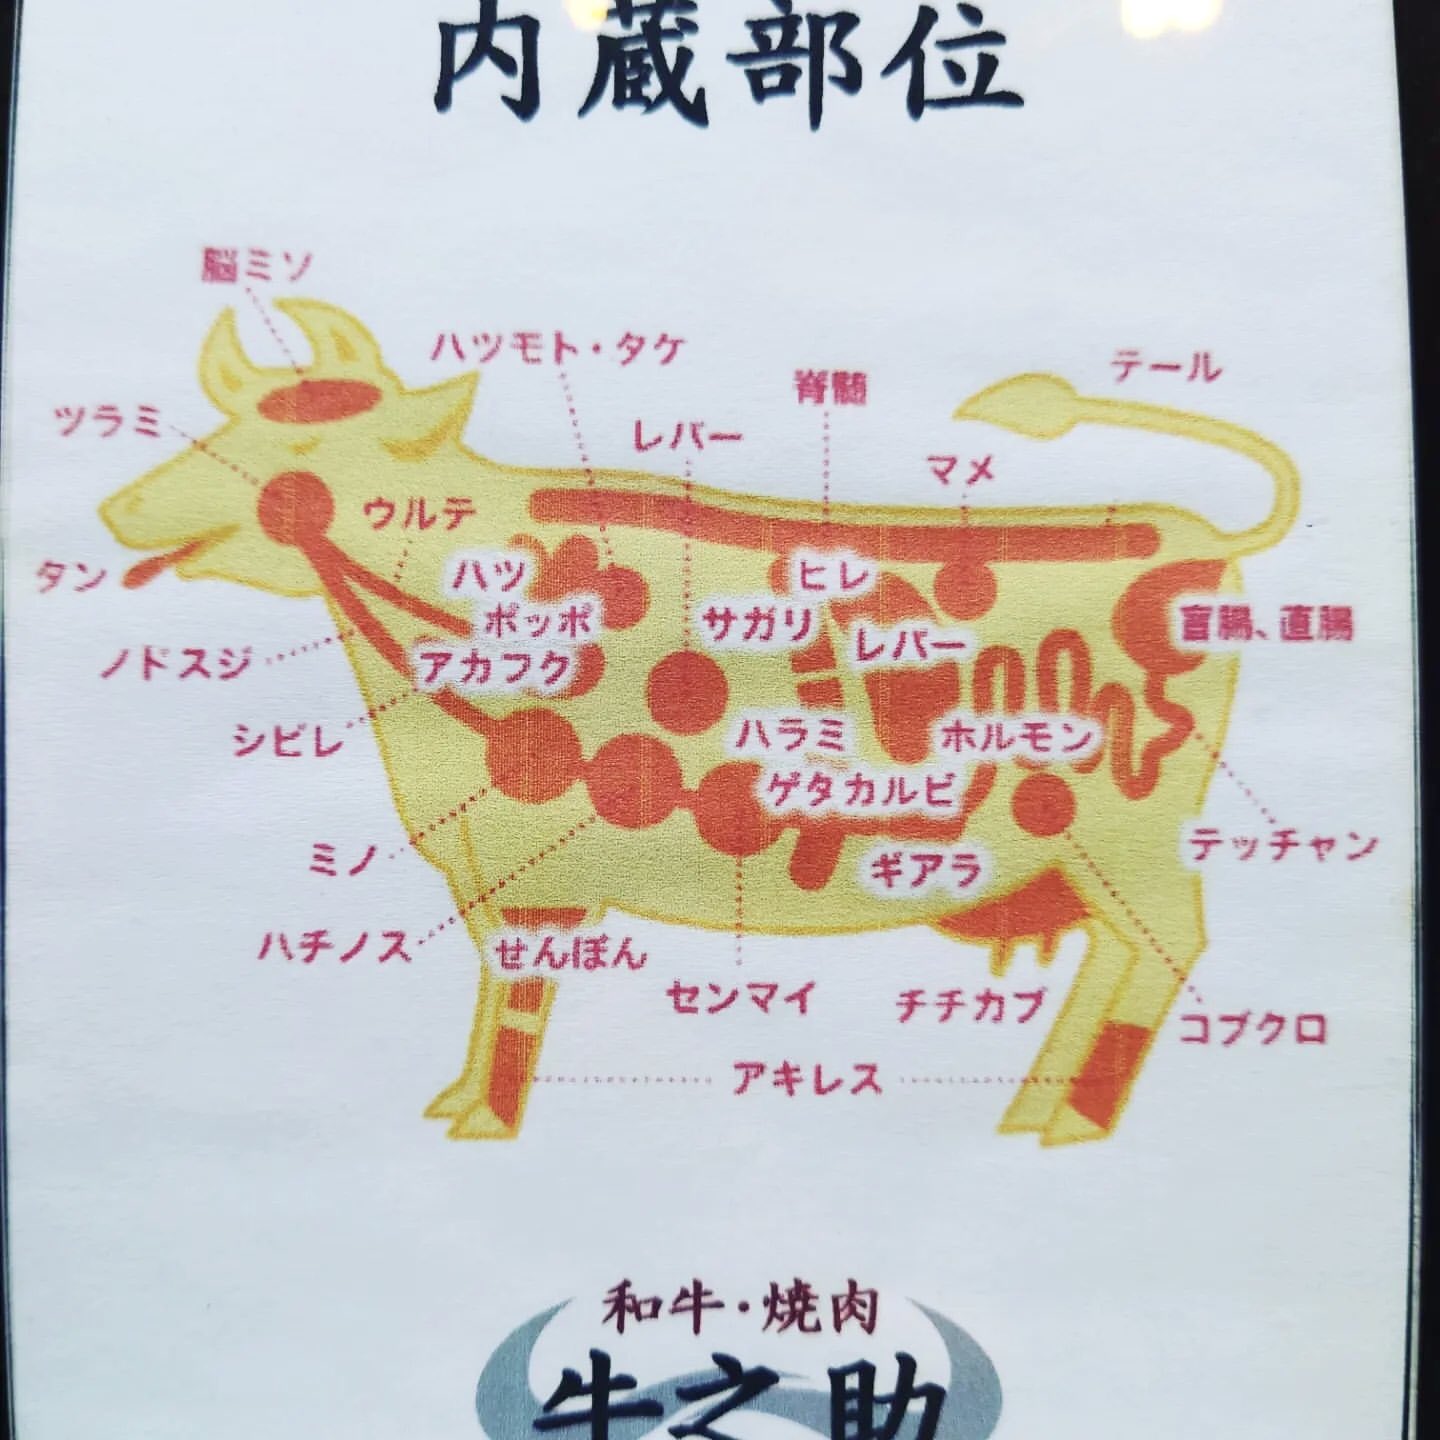 内蔵部位
脳ミソ
ハツモト・タケ
テール
脊髄
ツラミ
レバー
マメ
ウルテ
タン
ハツ
ヒレ
ポッポ
サガリ
盲腸、直腸
レバー
ノドスジ
アカフク
シビレ
ハラミ
ホルモン
ゲタカルビ
テッチャン
ミノ
ギアラ
ハチノス
せんぼん
センマイ
チチカブ
コブクロ
アキレス
和牛・焼肉
牛之助